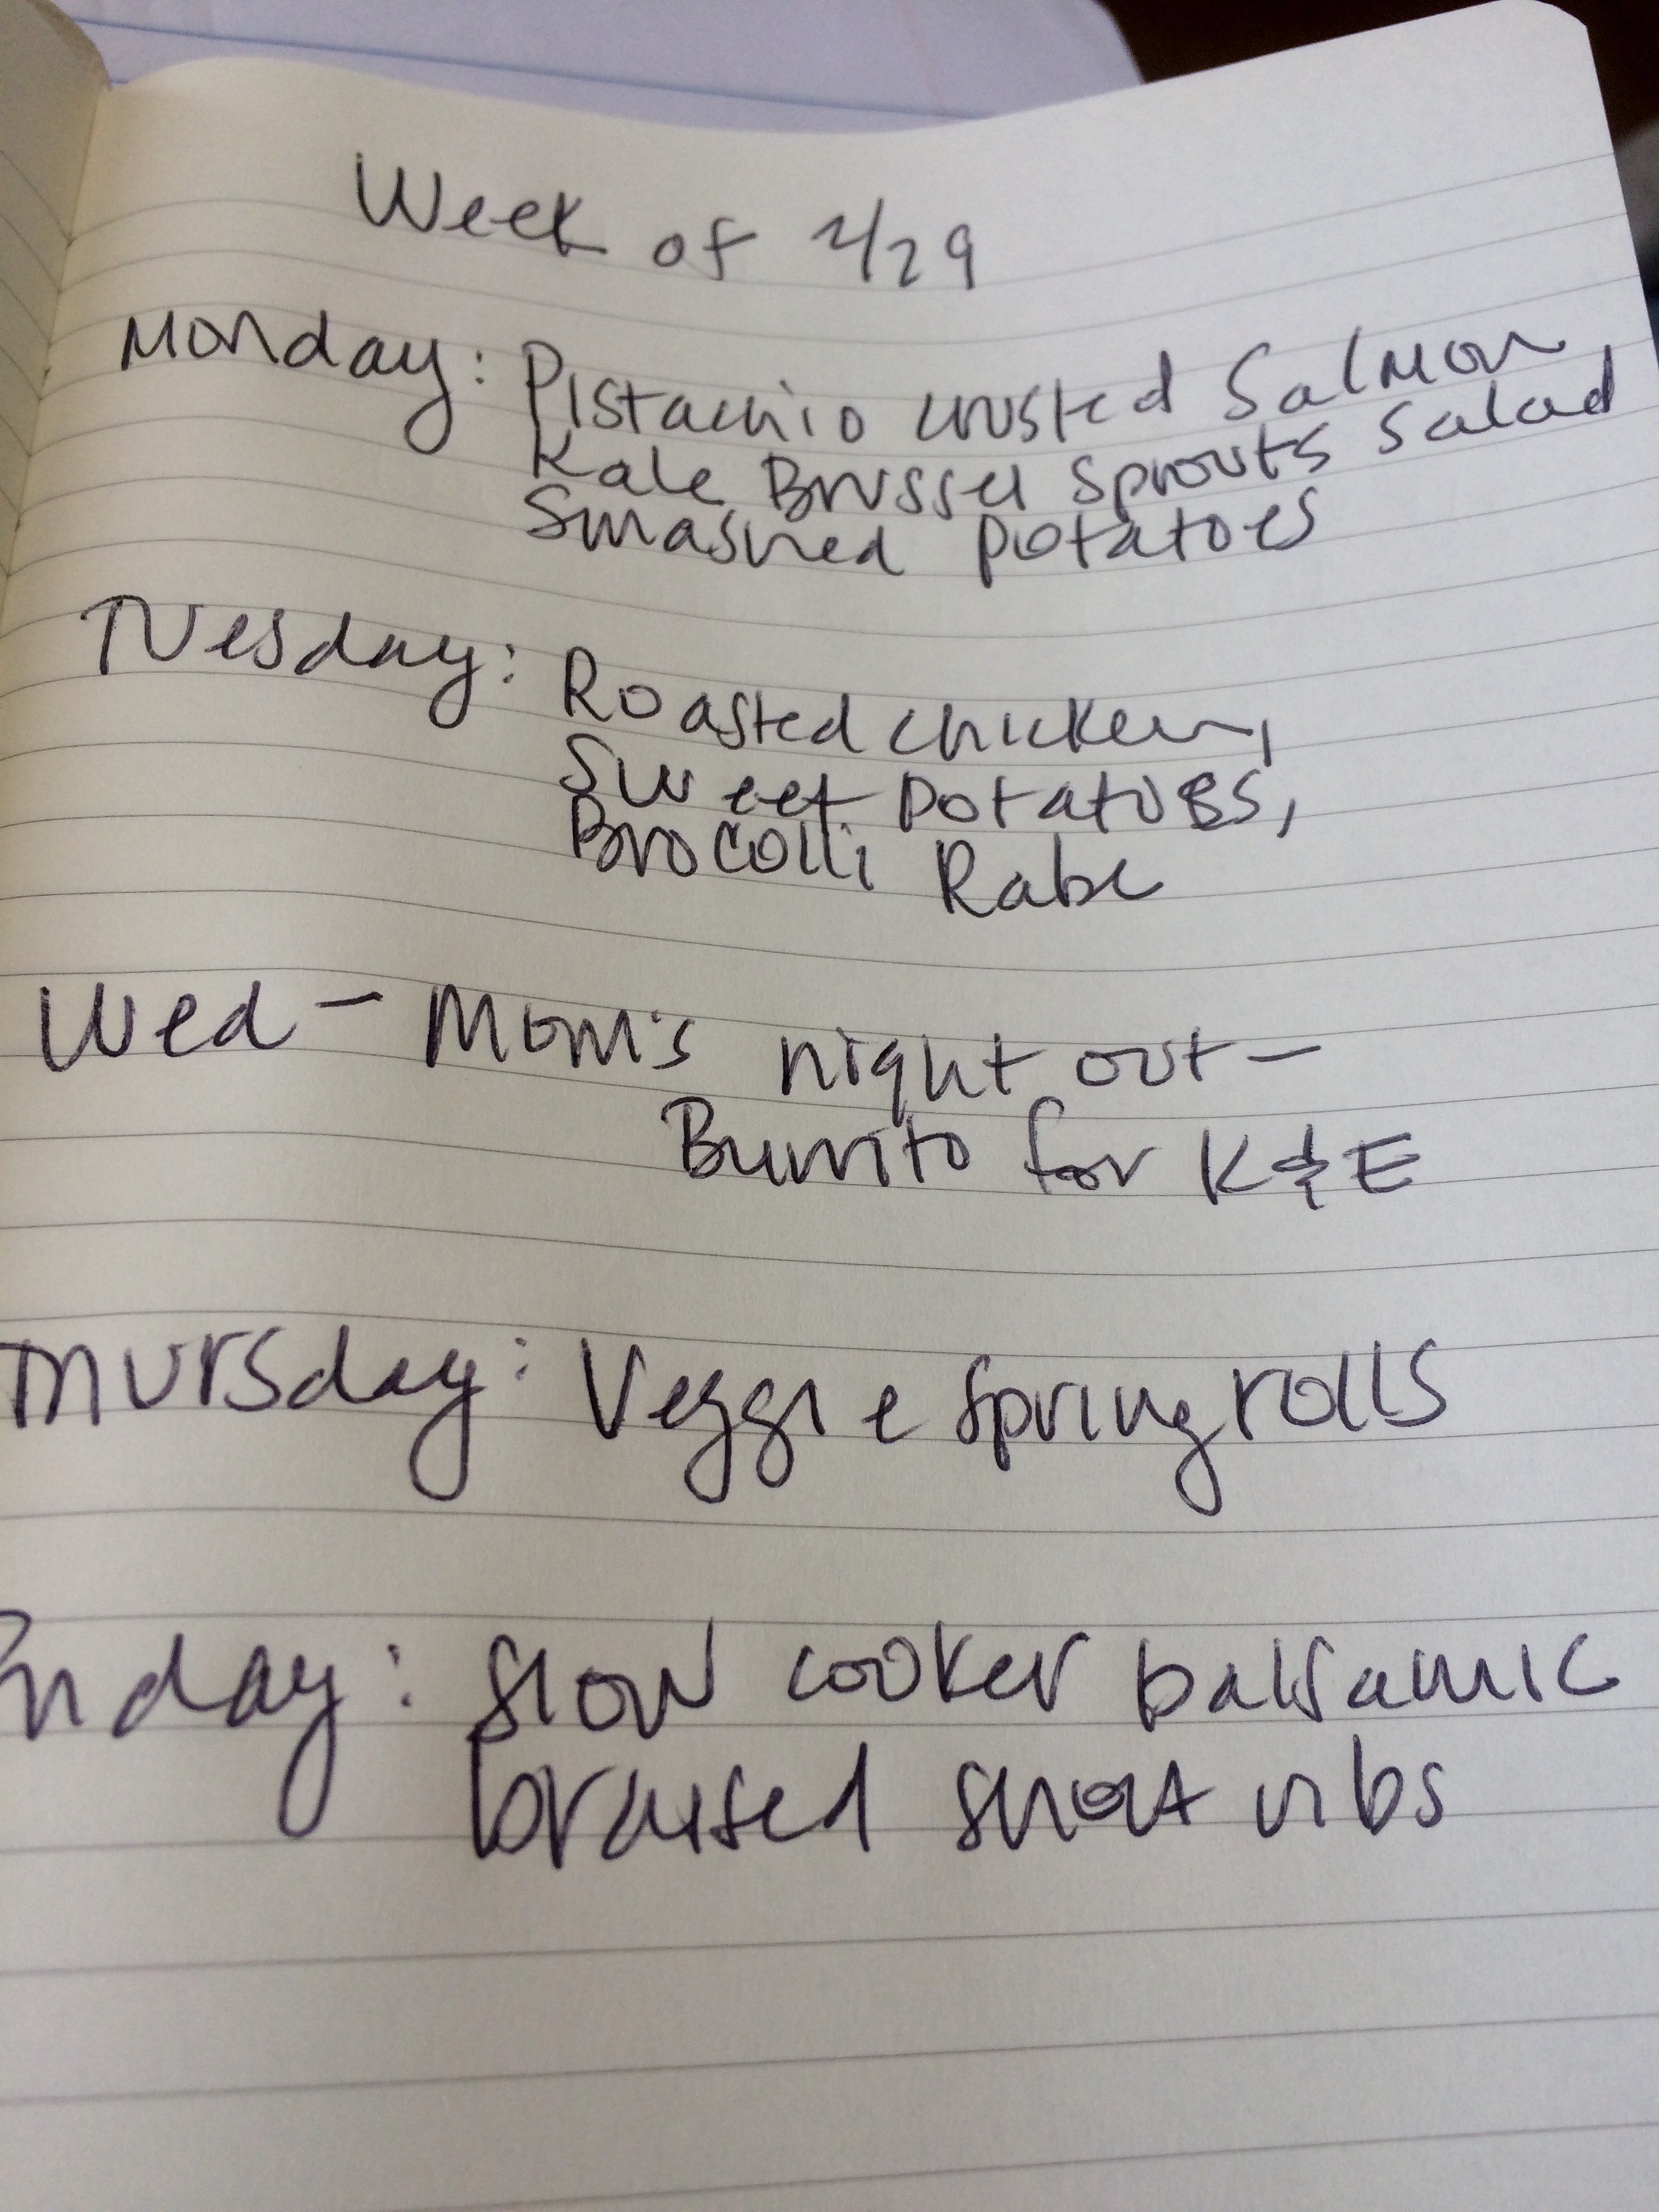 Week of 2/29
Monday: Pistachio crusted Salmon,
Kale Brussel Sprouts Salad
Smashed potatoes
Tuesday: Roasted chicken,
Sweet potatoes,
Brocolli Rabe
Wed - Mom's night out -
Burrito for K & E
Thursday: Veggie spring rolls
Friday: slow cooker balsamic
braised short ribs